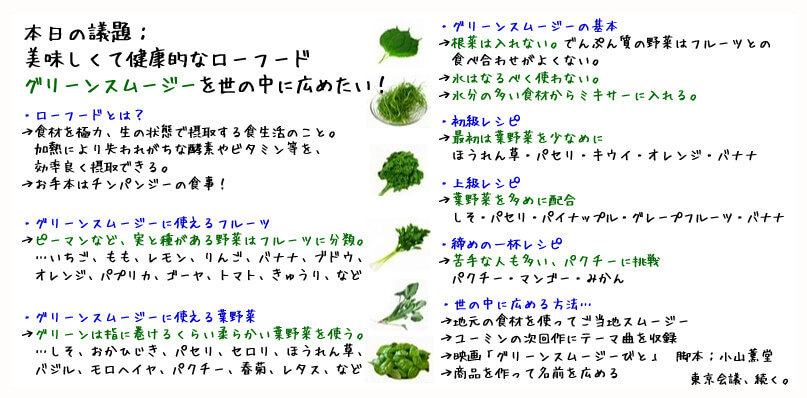 本日の議題;
美味しくて健康的なローフード
グリーンスムージーを世の中に広めたい!
・ローフードとは?
→食材を極力、生の状態で摂取する食生活のこと。
加熱により失われがちな酵素やビタミン等を、
効率良く摂取できる。
→お手本はチンパンジーの食事!
・グリーンスムージーに使えるフルーツ
→ピーマンなど、実と種がある野菜はフルーツに分類。
…いちご、もも、レモン、りんご、バナナ、ブドウ、
オレンジ、パプリカ、ゴーヤ、トマト、きゅうり、など
・グリーンスムージーに使える葉野菜
→グリーンは指に巻けるくらい柔らかい葉野菜を使う。
…しそ、おかひじき、パセリ、セロリ、ほうれん草、
バジル、モロヘイヤ、パクチー、春菊、レタス、など
・グリーンスムージーの基本
→根菜は入れない。でんぷん質の野菜はフルーツとの
食べ合わせがよくない。
→水はなるべく使わない。
→水分の多い食材からミキサーに入れる。
・初級レシピ
→最初は葉野菜を少なめに
ほうれん草・パセリ・キウイ・オレンジ・バナナ
・上級レシピ
→葉野菜を多めに配合
しそ・パセリ・パイナップル・グレープフルーツ・バナナ
・締めの一杯レシピ
→苦手な人も多い、パクチーに挑戦
パクチー・マンゴー・みかん
・世の中に広める方法…
→地元の食材を使ってご当地スムージー
→ユーミンの次回作にテーマ曲を収録
→映画「グリーンスムージーびと」 脚本;小山薫堂
→商品を作って名前を広める
東京会議、続く。